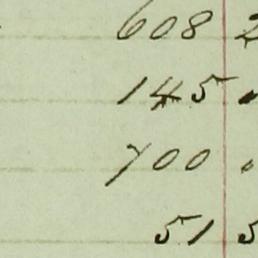 608 2
145 .
700 .
51 5